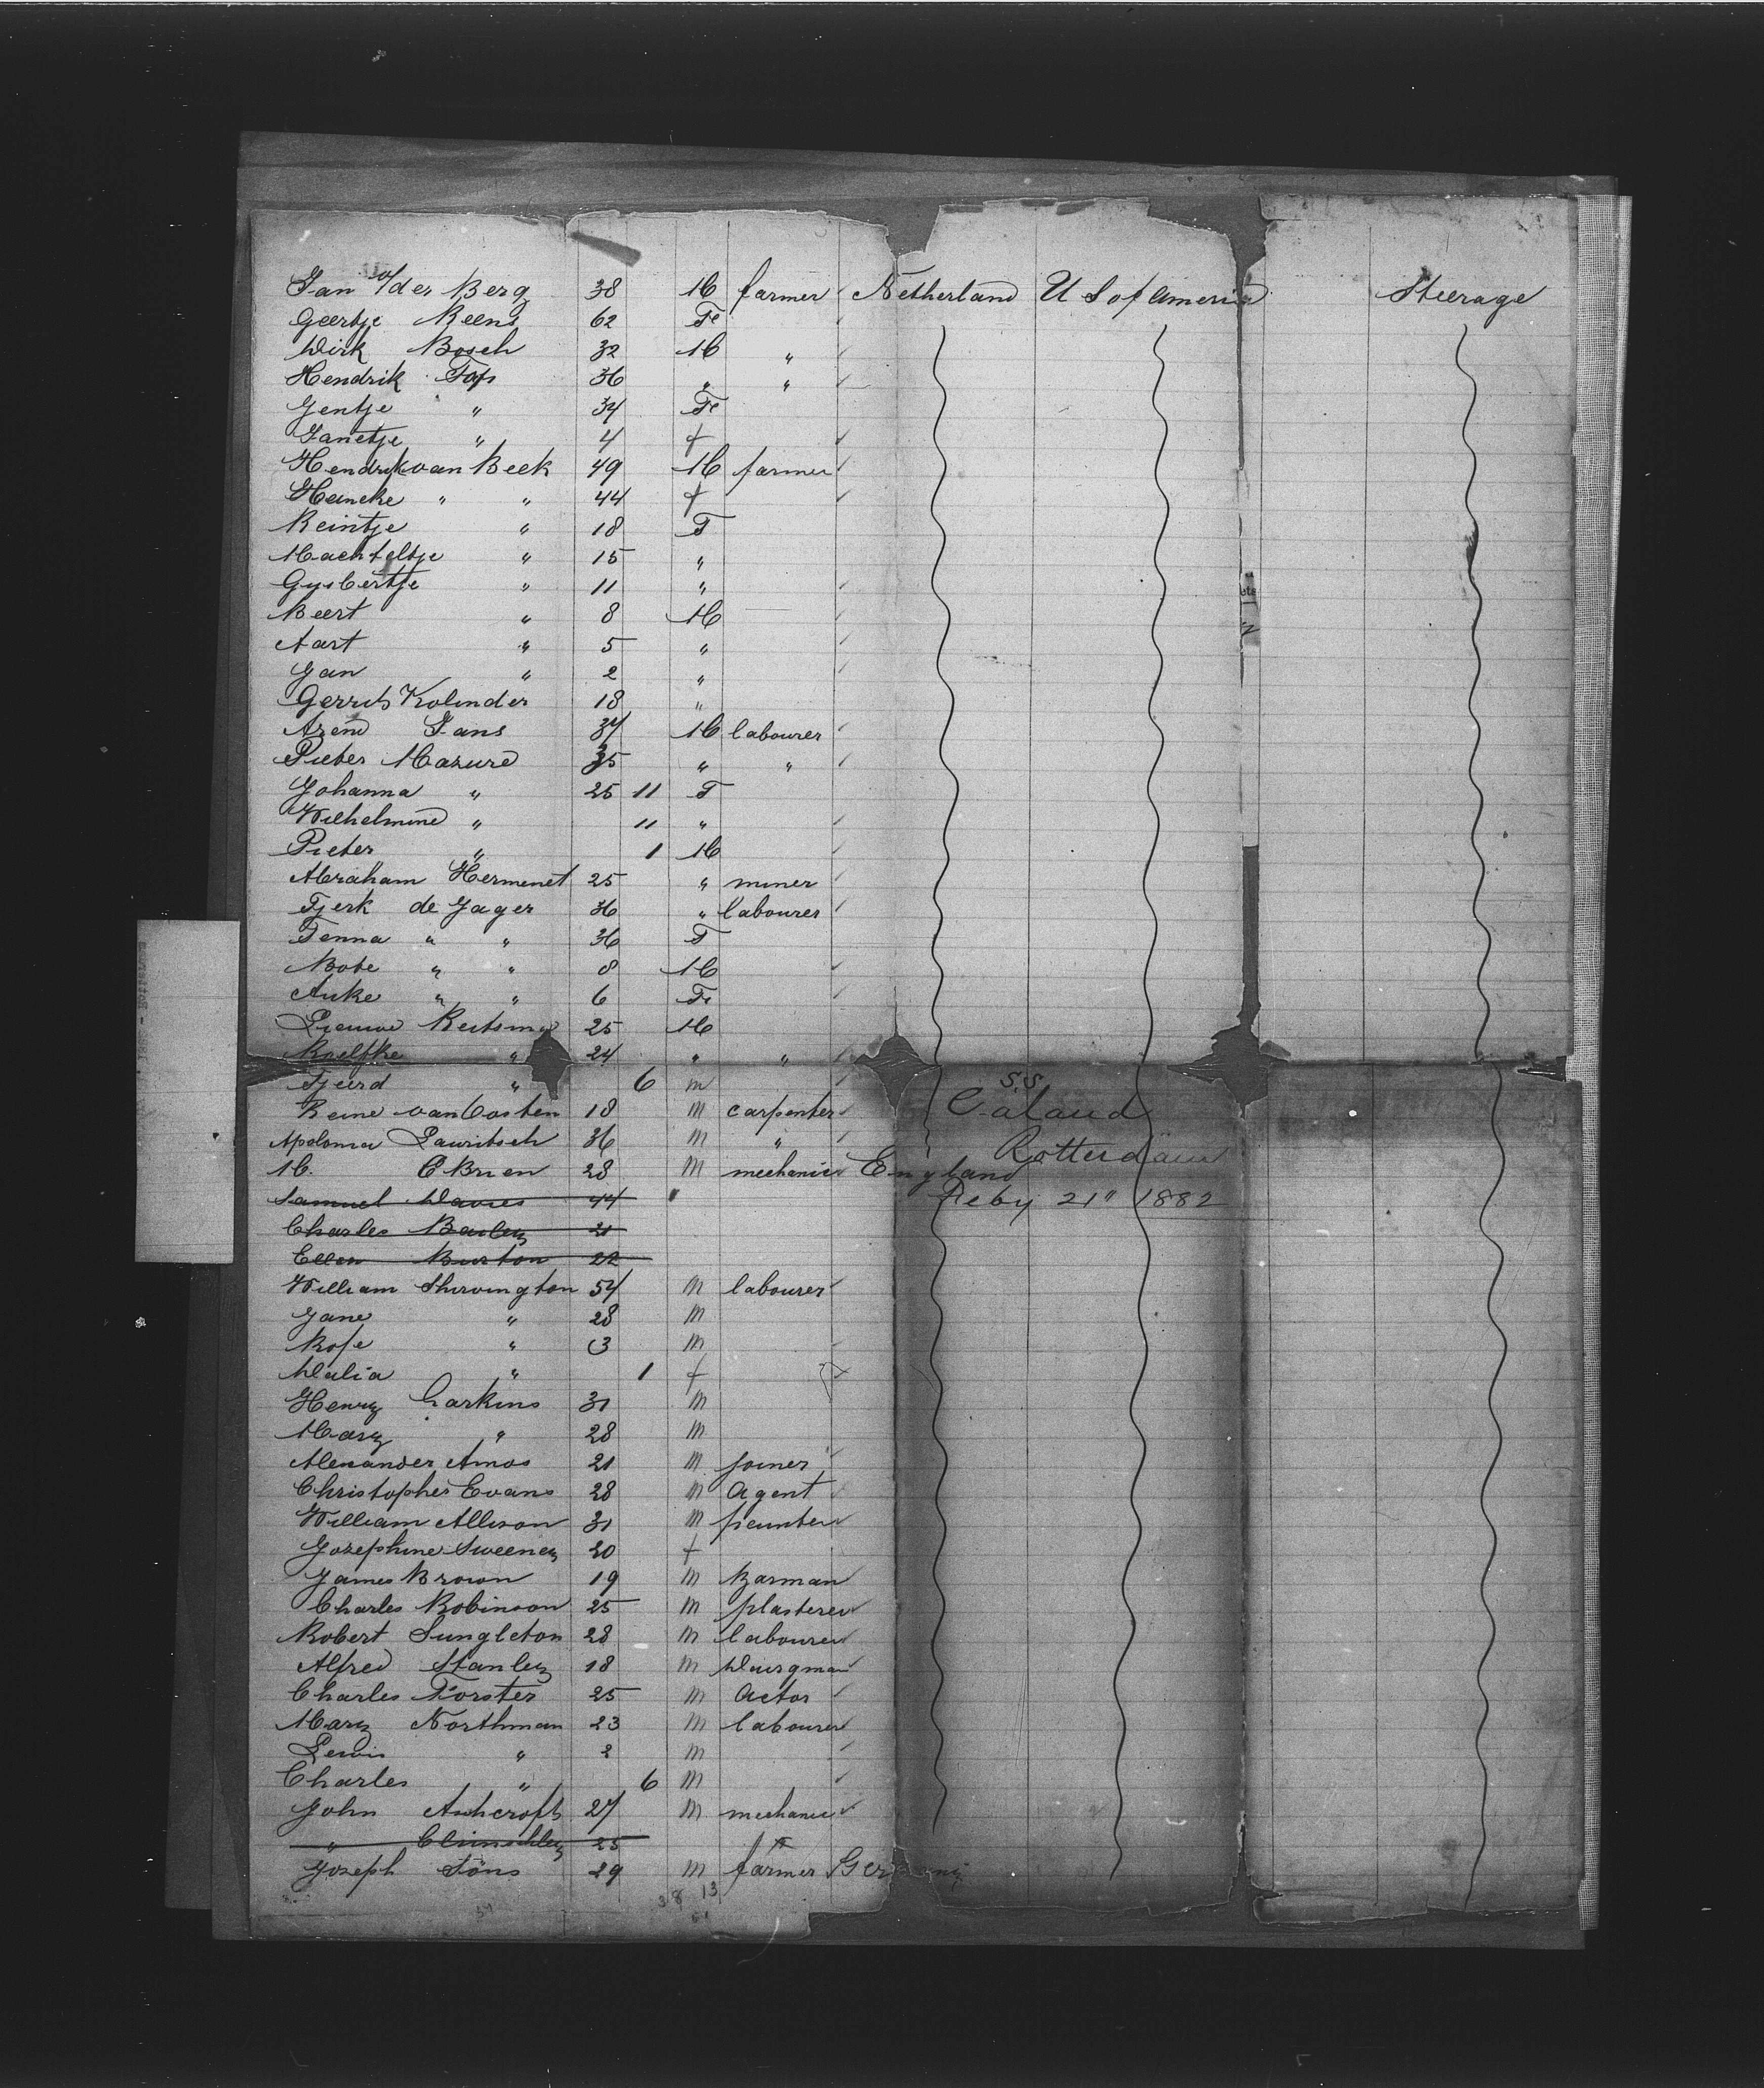 Jan v/der Berg 38 M farmer Netherland U S of America Steerage
Geertje Reens 62 Fe
Dirk Bosch 32 M "
Hendrik Tap 36 " "
Jentje " 34 Fe
Janetje " 4 f
Hendrik van Beek 49 M farmer
Heineke " " 44 f
Reintje " 18 F
Machteltje " 15 "
Gysbertje " 11 "
Beert " 8 M
Aart " 5 "
Jan " 2 "
Gerrit Kolinder 18 "
Arend Jans 34 M labourer
Pieter Mazure 35 " "
Johanna " 25 11 F
Wilhelmine " 11 "
Pieter " 1 M
Abraham Hermenet 25 " miner
Tjerk de Jager 36 " labourer
Tenna " " 36 F
Bote " " 8 M
Auke " " 6 Fe
Lieuwe Reitsma 25 M
Roelfke " 24 " "
Tjeerd " 6 m
S.S.
Reine van Oosten 18 m carpenter Caland
Apolonia Lauritsch 36 m " Rotterdam
M. O'Brien 28 m mechanic England
Samuel Davies 44 " Feby 21" 1882
Charles Bailey 21
Ellen Burton 22
William Shirvington 54 m labourer
Jane " 28 m
Rose " 3 m
Delia " 1 f
Henry Harkins 31 m
Mary " 28 m
Alexander Amos 21 m joiner
Christopher Evans 28 m Agent
William Allison 31 m painter
Josephine Sweeney 20 f
James Brown 19 m Barman
Charles Robinson 25 m plasterer
Robert Sungleton 28 m labourer
Alfred Stanley 18 m
Charles Forster 25 m Actor
Mary Northman 23 m labourer
Lewis " 2 m
Charles " 6 m
John Ashcroft 27 m mechanic
" 25
Joseph Sons 29 m farmer Germany
38 13
51